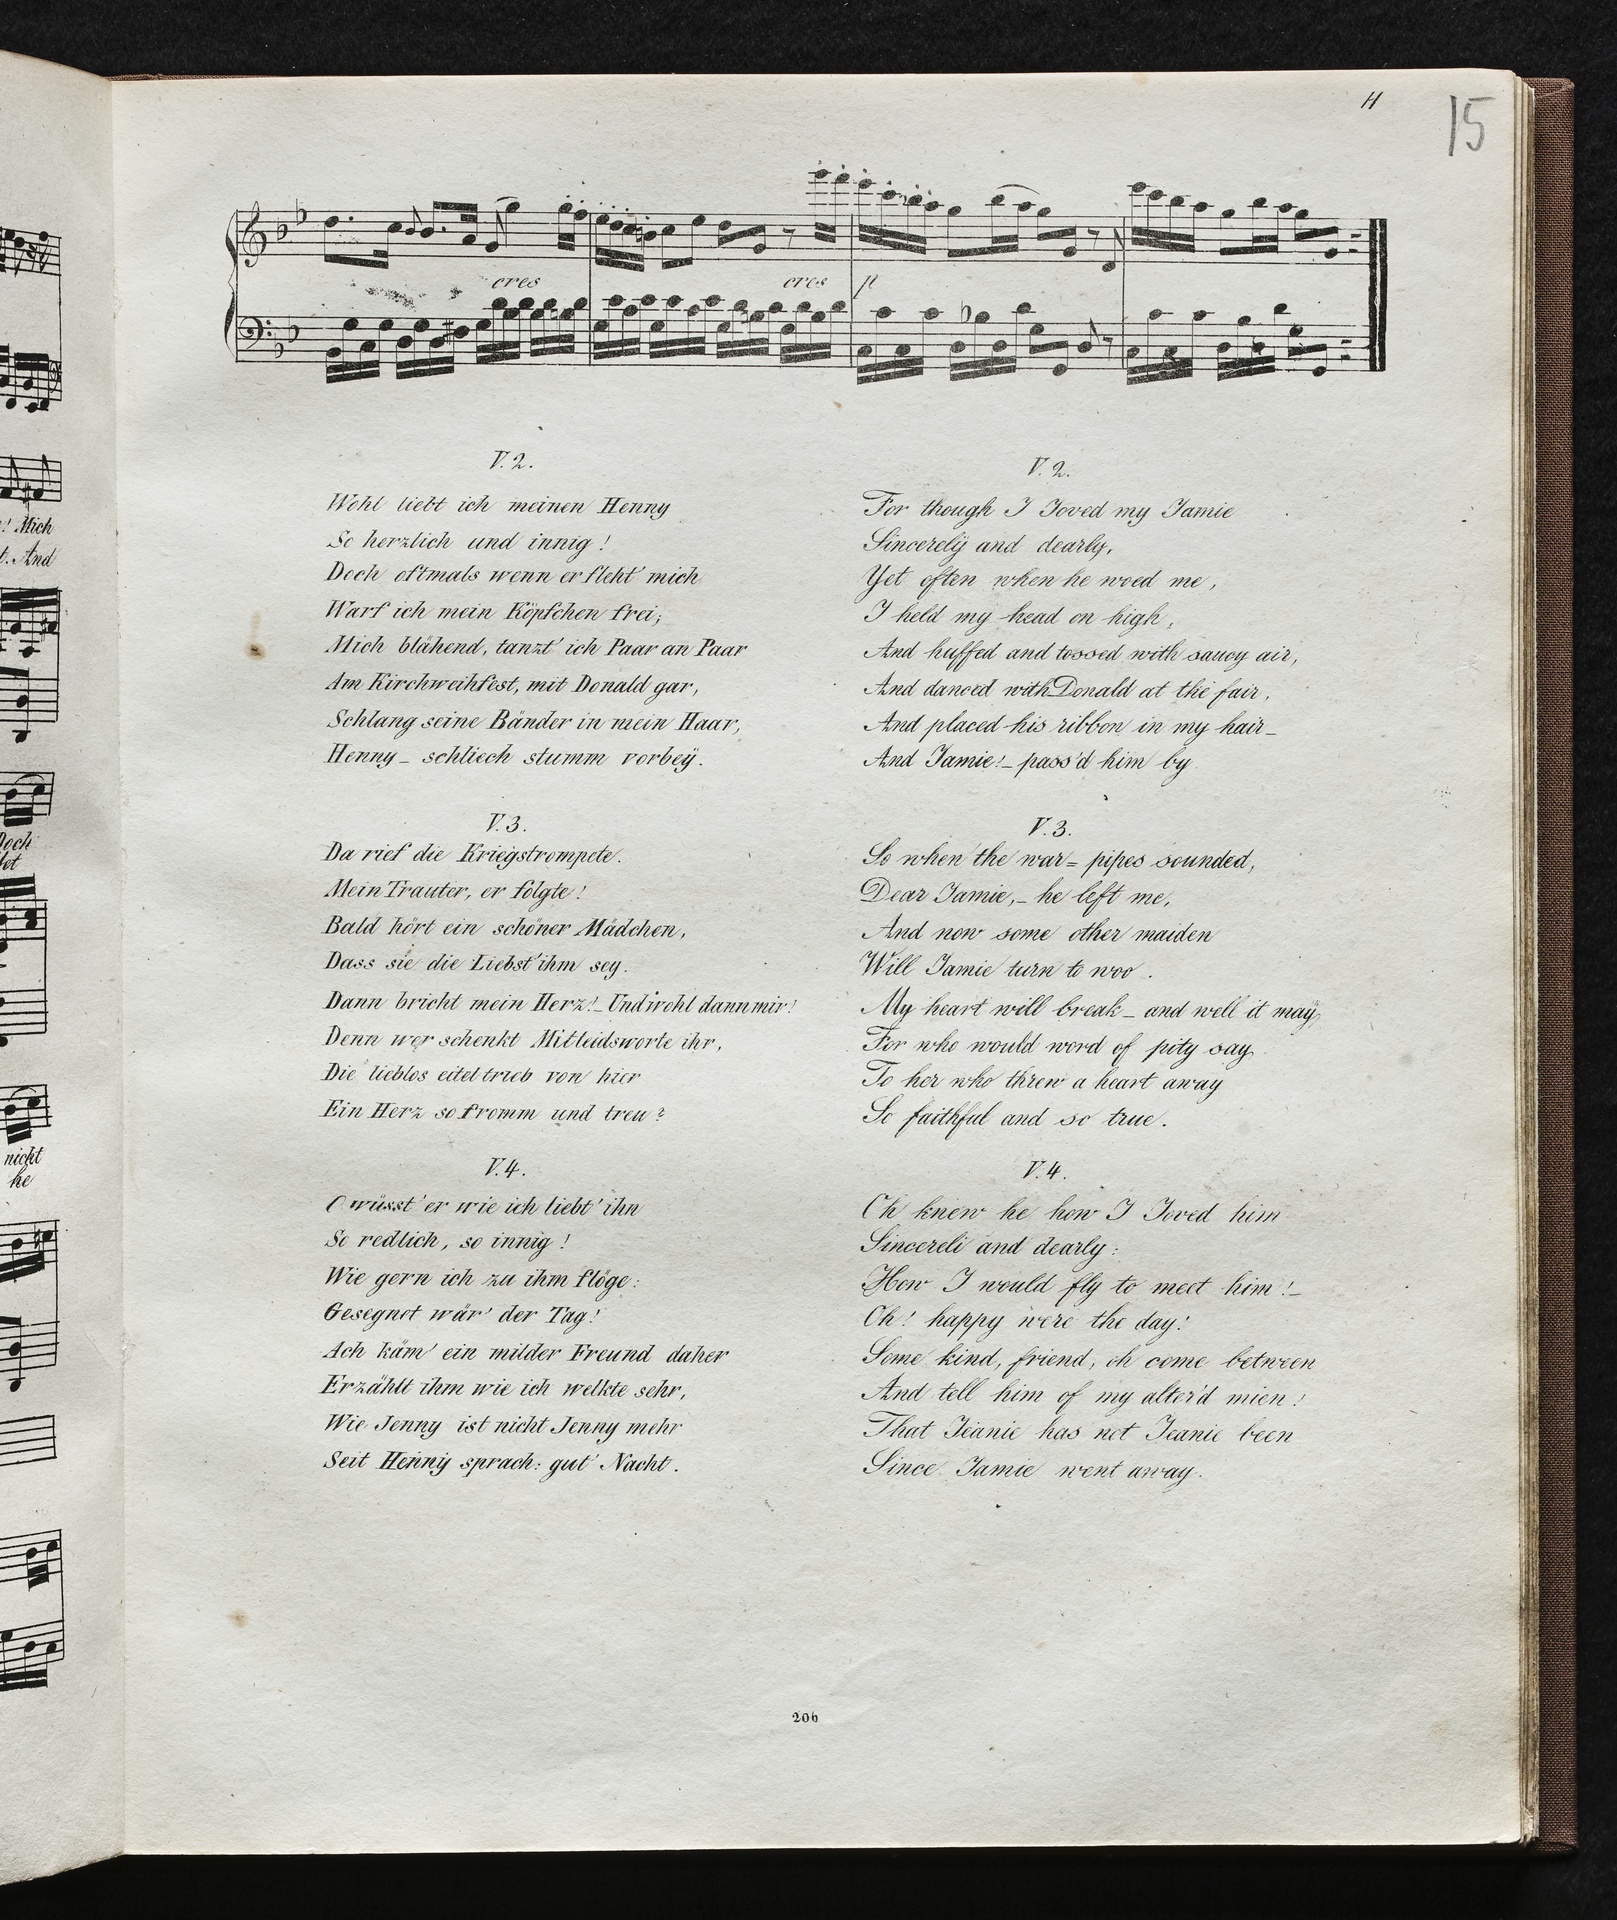 11
15
cres
cres
p
V. 2.
Wohl liebt ich meinen Henny
So herzlich und innig!
Doch oftmals wenn er fleht' mich
Warf ich mein Köpfchen frei;
Mich blähend, tanzt' ich Paar an Paar
Am Kirchweihfest, mit Donald gar,
Schlang seine Bänder in mein Haar,
Henny_ schliech stumm vorbeÿ.
V. 3.
Da rief die Kriegstrompete.
Mein Trauter, er folgte!
Bald hört ein schöner Mädchen,
Dass sie die Liebst' ihm sey.
Dann bricht mein Herz!_ Und wohl dann mir!
Denn wer schenkt Mitleidsworte ihr,
Die lieblos eitel trieb von hier
Ein Herz so fromm und treu?
V. 4.
O wüsst' er wie ich liebt' ihn
So redlich, so innig!
Wie gern ich zu ihm flöge:
Gesegnet wär' der Tag!
Ach käm' ein milder Freund daher
Erzählt ihm wie ich welkte sehr,
Wie Jenny ist nicht Jenny mehr
Seit Henny sprach: gut' Nacht.
V. 2.
For though I Joved my Jamie
Sincerelÿ and dearly,
Yet often when he woed me,
I held my head on high,
And huffed and tossed with saucy air,
And danced with Donald at the fair,
And placed his ribbon in my hair_
And Jamie!_ pass'd him by.
V. 3.
So when the war= pipes sounded,
Dear Jamie,_ he left me,
And now some other maiden
Will Jamie turn to woo.
My heart will break_ and well it may,
For who would word of pity say
To her who threw a heart away
So faithful and so true.
V. 4.
Oh knew he how I Joved him
Sincereli and dearly:
How I would fly to meet him!_
Oh! happy were the day!
Some kind, friend, oh come between
And tell him of my alter'd mien!
That Jeanie has not Jeanie been
Since Jamie went away.
206
! Mich
t. And
Doch
nicht
he